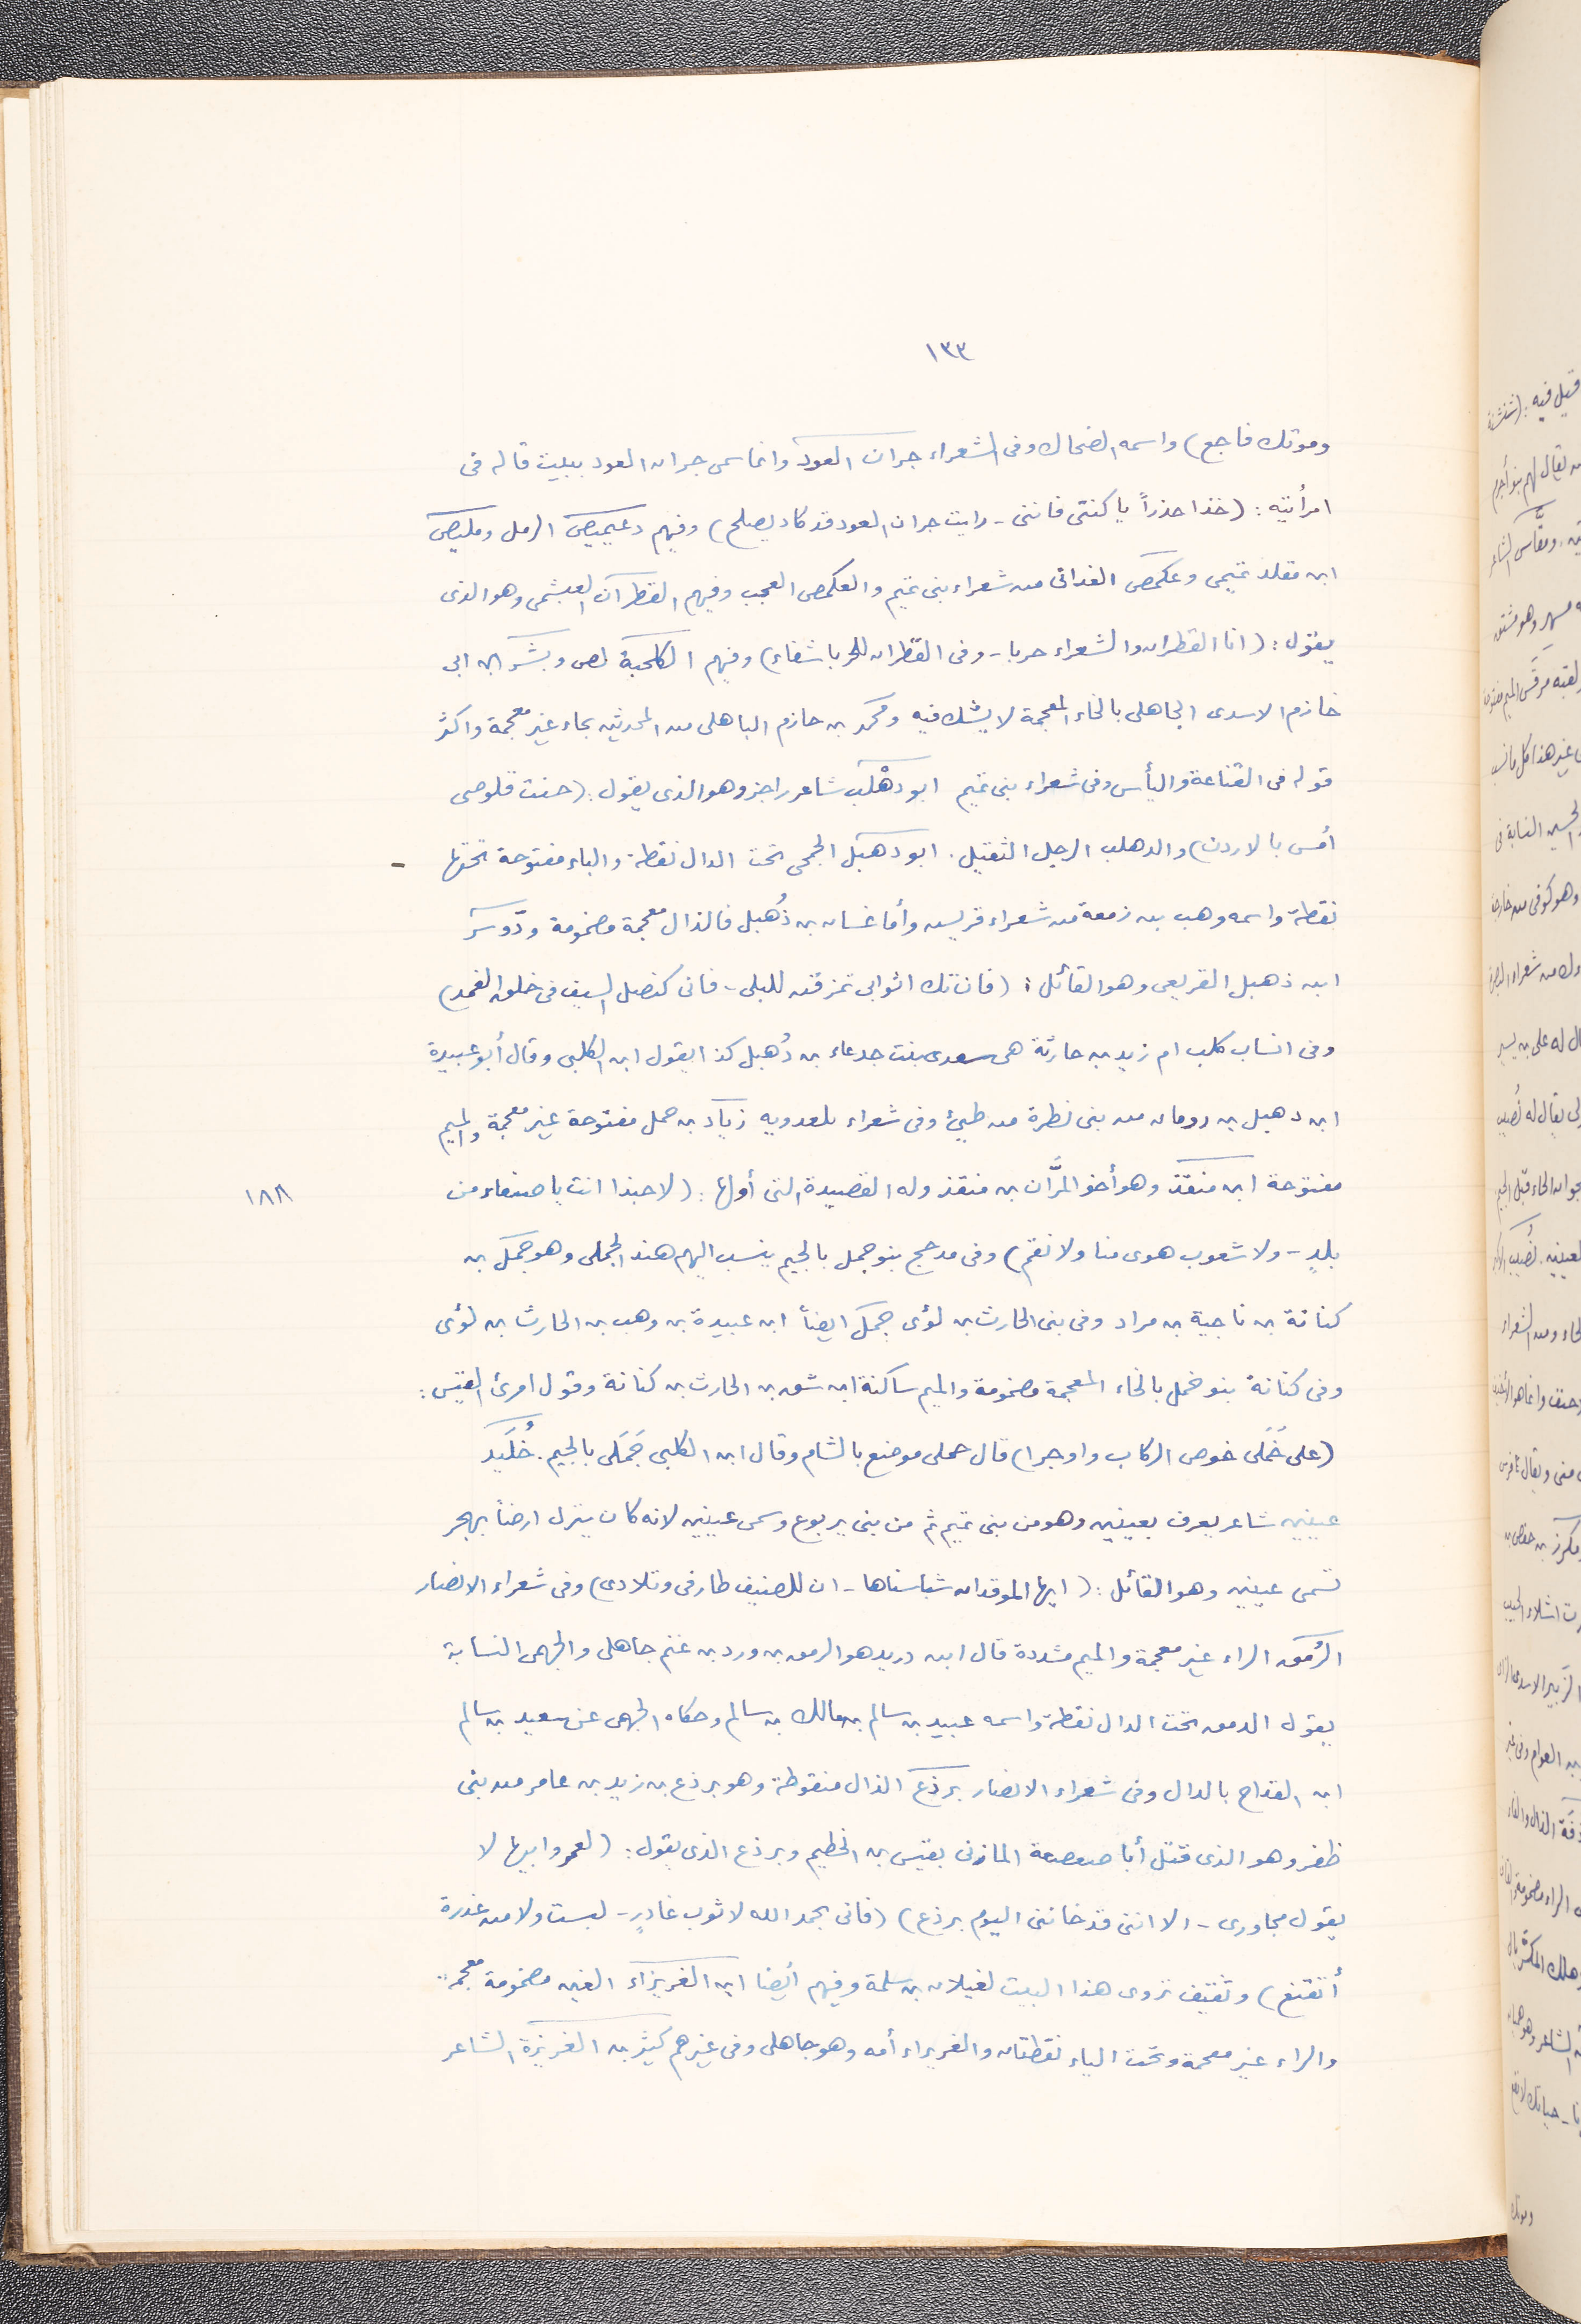 ١٣٣
وموتك فاجع) واسمه الضحاك وفى الشعراء جران العود وانما سمى جران العود ببيت قاله فى
امرأتيه: (خذا حذراً يا كنتى فاننى - رايت جران العود قد كاد يصلح) وفيهم دعيميص الرمل ومليص
ابن مقلد تميمى وعكمص الغدانى من شعراء بنى تميم والعكمص العجب وفيهم القطران العبشمى وهو الذى
يقول: (انا القطران والشعراء حربا - وفى القطران للحربا شفاء) وفيهم الكلحبة لص وبشر ابن ابى
خازم الاسدى الجاهلى بالخاء المعجمة لا يشك فيه ومحمد بن حازم الباهلى من المحدثين بحاء غير معجمة واكثر
قوله فى القناعة واليأس وفى شعراء بنى تميم ابو دهْلب شاعر راجز وهو الذى يقول: (حنت قلوصى
أمس بالاردن) والدهلب الرجل الثقيل. ابو دهبل الجمحى تحت الدال نقطة والباء مفتوحة تحتها
نقطة واسمه وهب بن زمعة من شعراء قريش وأما غسان بن ذُهبل فالذال معجمة مضمومة ودَوسر
ابن ذهبل القريعى وهو القائل: (فان تك اثوابى تمزقن للبلى - فانى كنصل السيف فى خلق الغمد)
وفى انساب كلب ام زيد بن حارثة هى سعدى بنت جدعاء بن ذُهبل كذا يقول ابن الكلبى وقال أبو عبيدة
ابن دهبل بن رومان من بنى نظرة من طيئ وفى شعراء بلعدويه زياد بن حمل مفتوحة غير معجمة والميم
مفتوحة ابن منقذ وهو أخو المرَّان بن منقذ وله القصيدة التى أولها: (لا حبذا انت يا صنعاء من
١٨٨
بلدٍ - ولا شعوب هوى منا ولا نقم) وفى مدحج بنو جمل بالجيم ينسب اليهم هند الجملى وهو جمل بن
كنانة بن ناجية بن مراد وفى بنى الحارث بن لؤى جمل ايضاً ابن عبيدة بن وهب بن الحارث بن لؤى
وفى كنانة بنو خمل بالخاء المعجمة مضمومة والميم ساكنة ابن شق بن الحارث بن كنانة وقول امرئ القيس:
(على خَمَلى خوص الركاب واوجرا) قال حملى موضع بالشام وقال ابن الكلبى جَمَلى بالجيم. خُلَيد
عينين شاعر يعرف بعينين وهو من بنى تميم ثم من بنى يربوع وسمى عينين لانه كان ينزل ارضاً بهجر
تسمى عينين وهو القائل: (ايها الموقدان شبا سناها - ان للضيف طارفى وتلادى) وفى شعراء الانصار
الرُمق الراء غير معجمة والميم مشددة قال ابن دريد هو الرمق بن ورد بن غنم جاهلى والجهمى النسابة
يقول الدمق تحت الدال نقطة واسمه عبيد بن سالم بن مالك بن سالم وحكاه الجهمى عن سعيد بن سالم
ابن القداح بالدال وفى شعراء الانصار برذع الذال منقوطة وهو برذع بن زيد بن عامر من بنى
ظفر وهو الذى قتل أبا صعصعة المازنى بقيس بن الخطيم وبرذع الذى يقول: (لعمر وابيها لا
يقول مجاورى - الا اننى قد خاننى اليوم برذع) (فانى بحمد الله لا ثوب غادرٍ - لبست ولا من غدرة
أتقنع) وثقيف تروى هذا البيت لغيلان بن سلمة وفيهم أيضا ابن الغريزاء الغين مضمومة معجمة
والراء غير معجمة وتحت الياء نقطتان والغريراء أمه وهو جاهلى وفى غيرهم كثير بن الغريزة الشاعر